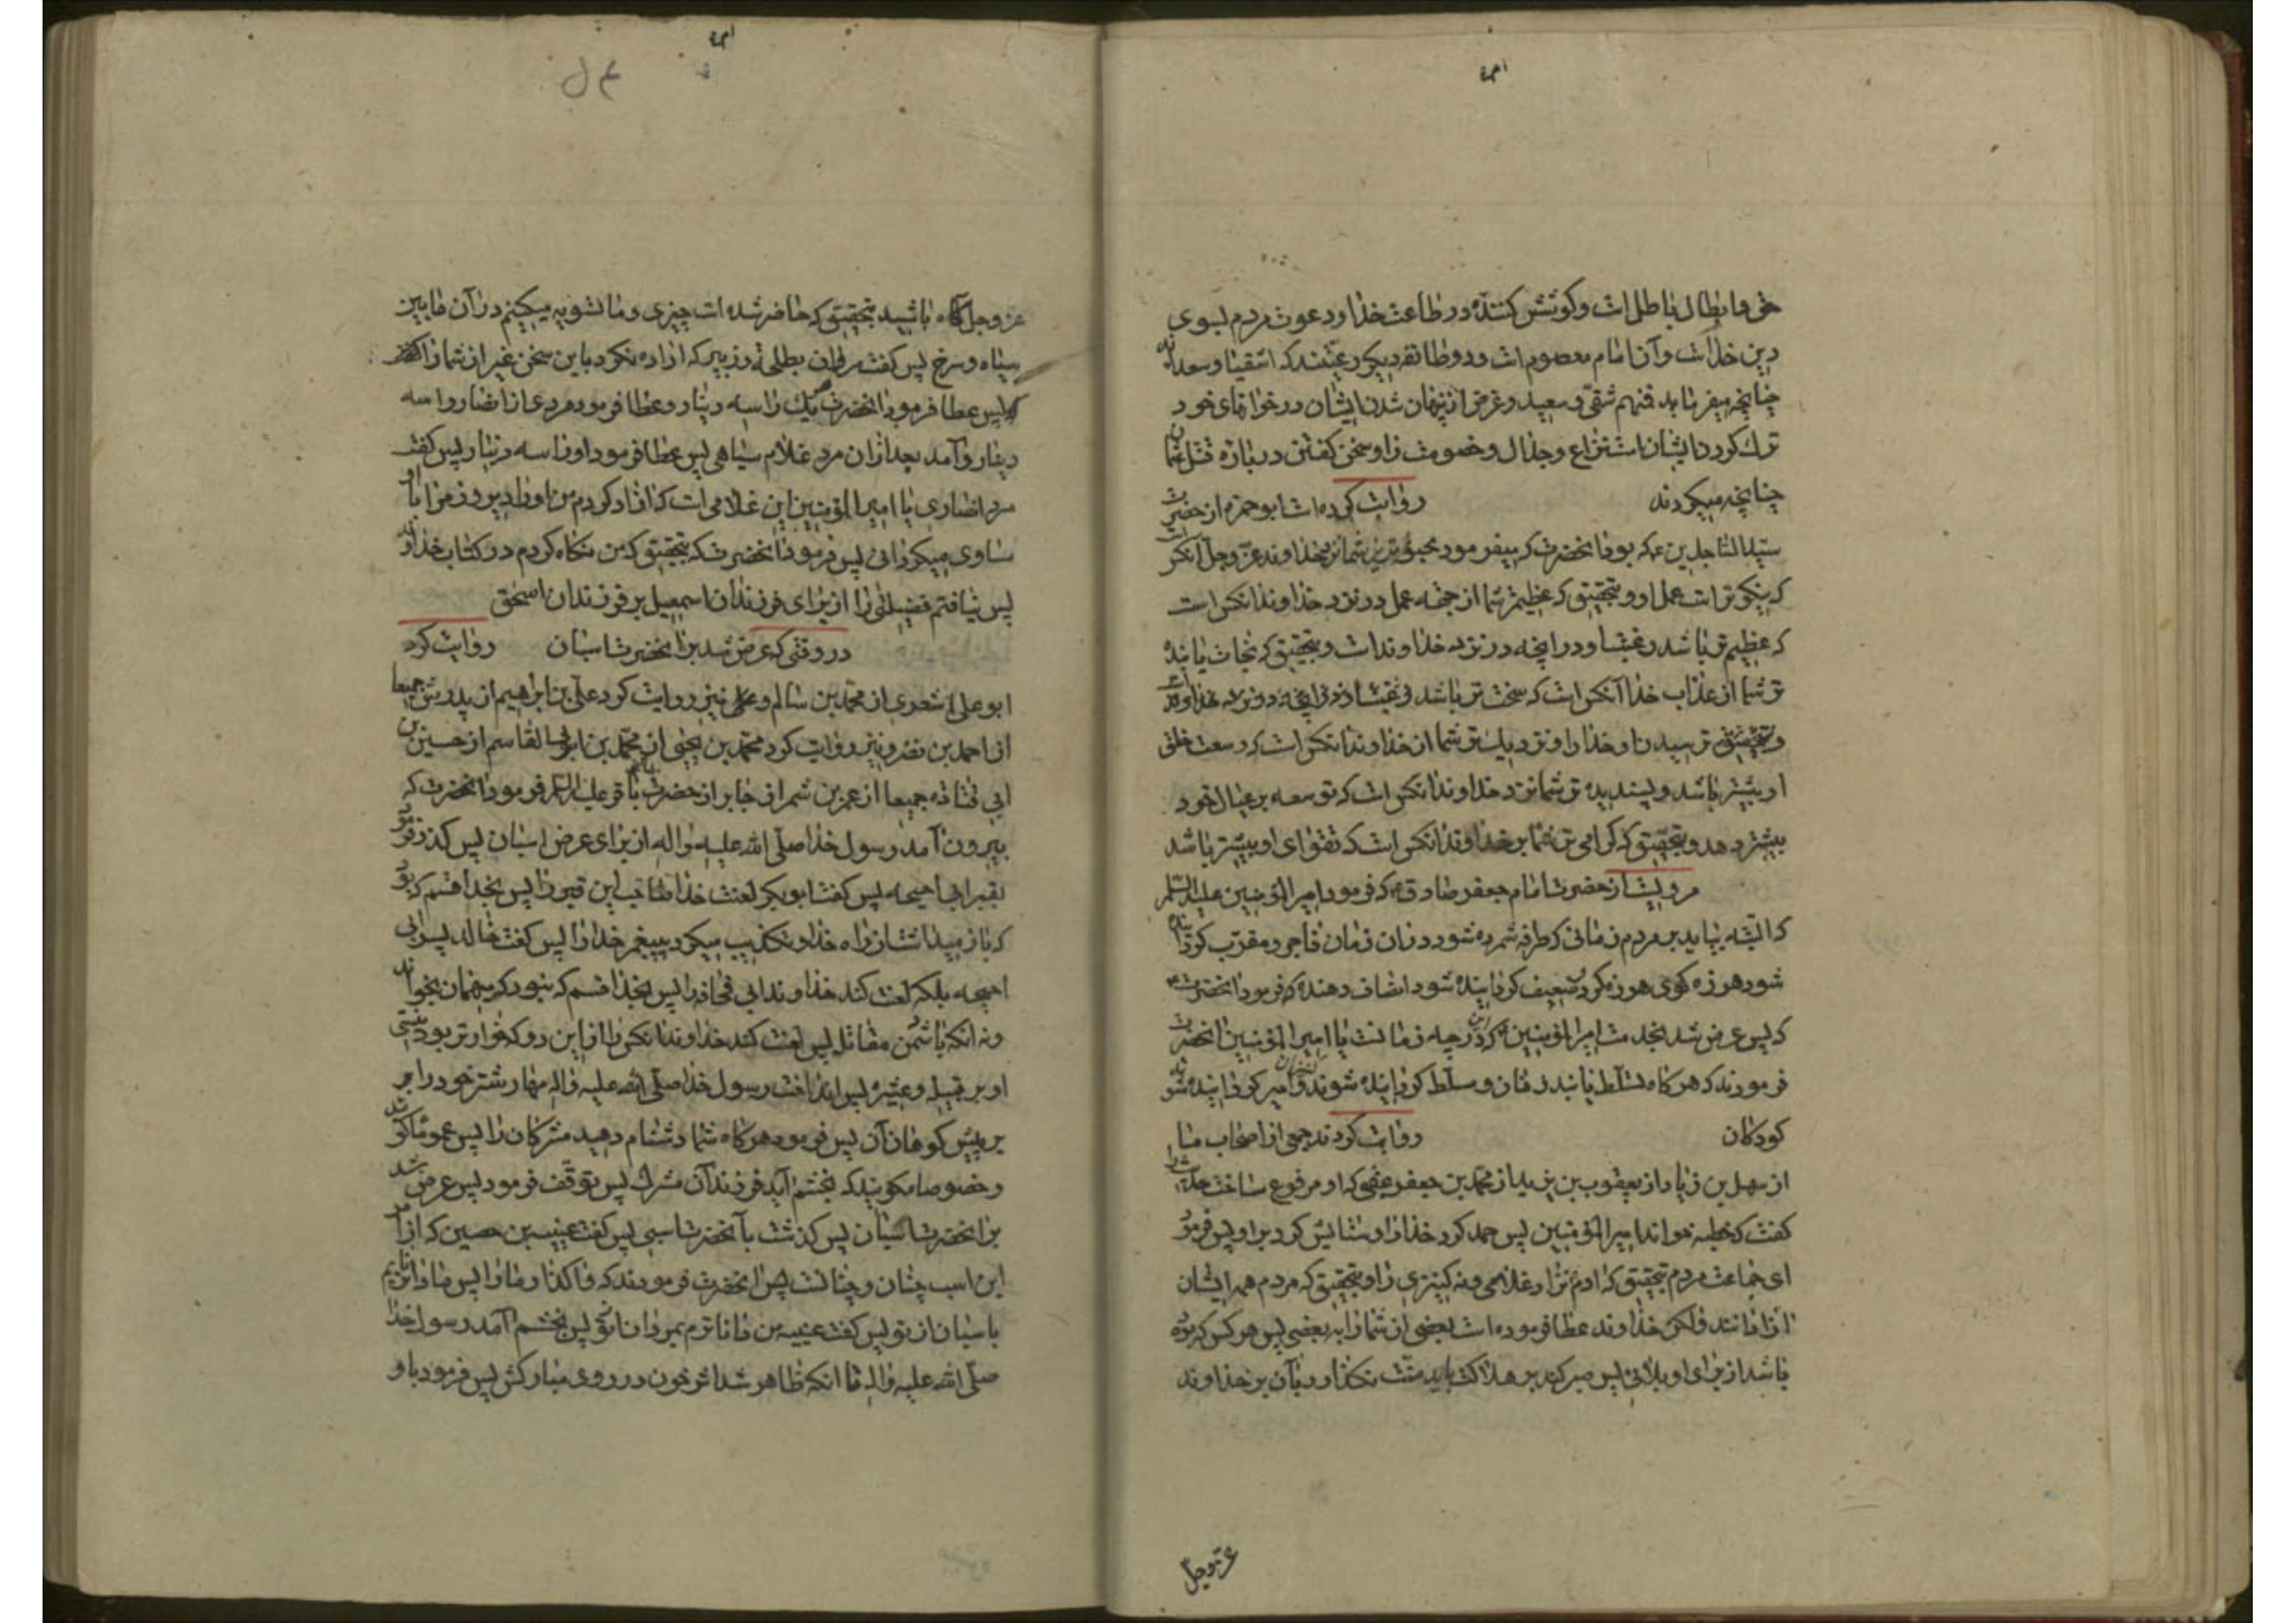 حق و ابطال باطل است و کوشش کننده در طاعت خدا و دعوت مردم بسوی
دین خداست و آن امام معصوم است و دو طائفه دیگر رعیتند که اشقیا و سعدااند
چنانچه میفرماید فمنهم شقی و سعید و غرض از پنهان شدن ایشان در خوابهای خود
ترک کردن ایشانست نزاع و جدال و خصومت را و سخن گفتن درباره قتل عثمان
چنانچه میکردند روایت کرده است ابو حمزه از حضرت
سید الساجدین ع که بود آنحضرت که میفرمود محبوبترین شما نزد خداوند عز و جل آنکس است
که نیکوتر است عمل او و بتحقیق که عظیمتر شما از جهة عمل در نزد خداوند آنکس است
که عظیم تر باشد رغبت او در آنچه در نزد خداوند است و بتحقیق که نجات یابنده
تر شما از عذاب خدا آنکس است که سخت تر باشد
و بتحقیق ترسیدن او خدا را و نزدیک تر شما از خداوند آنکس است که وسعت خلق
او بیشتر باشد و پسندیده تر شما نزد خداوند آنکس است که توسعه بر عیال خود
بیشتر دهد و بتحقیق که گرامی تر شما بر خداوند آنکس است که تقوای او بیشتر باشد
مرویست از حضرت امام جعفر صادق ع که فرمود امیر المؤمنین علیه السلم
که البته بیاید بر مردم زمانی که طرفه شمرده شود در آن زمان فاجر و مقرب گردانیده
شود هرزه گوی هرزه گرد و ضعیف گردانیده شود انصاف دهنده که فرمود آنحضرت ع
که پس عرض شد بخدمت امیر المؤمنین که این در چه زمانست یا امیر المؤمنین آنحضرت
فرمودند که هرگاه تسلط یابند زنان و مسلط گردانیده شوند کنیزان و امیر گردانیده شوند
کودکان روایت کردند جمعی از اصحاب ما
از سهل بن زیاد از یعقوب بن یزید از محمد بن جعفر عقبی که او مرفوع ساخت حدیث را
گفت که خطبه خواند امیر المؤمنین پس حمد کرد خدا را و ستایش کرد بر او پس فرمود
ای جماعت مردم بتحقیق که آدم نزاد غلامی و نه کنیزی را و بتحقیق که مردم همه ایشان
آزادانند و لکن خداوند عطا فرموده است بعضی از شما را به بعضی پس هرکس که بوده
باشد از برای او بلائی پس صبر کند باید منت نگذارد بآن بر خداوند
عز و جل
عز و جل آگاه باشید بتحقیق که حاضر شده است چیزی و ما تسویه میکنیم در آن مابین
سیاه و سرخ پس گفت مروان بطلحه و زبیر که اراده نکرد باین سخن غیر از شما را
پس عطا فرمود آنحضرت هر یک را سه دینار و عطا فرمود مردی از انصار را سه
دینار و آمد بعد از آن مرد غلام سیاهی پس عطا فرمود او را سه دینار پس گفت
مرد انصاری یا امیر المؤمنین این غلامی است که آزاد کردم من او را دیروز مرا با او
مساوی میگردانی پس فرمود آنحضرت که بتحقیق که من نگاه کردم در کتاب خداوند
پس نیافتم فضیلتی را از برای فرزندان اسمعیل بر فرزندان اسحق
در وقتی که عرض شد بر آنحضرت اسبان روایت کرد
ابو علی اشعری از محمد بن سالم و نیز روایت کرد علی بن ابراهیم از پدرش جمیعا
از احمد بن نضر و نیز روایت کرد محمد بن یحیی از محمد بن ابو القاسم از حسین بن
ابی قتاده جمیعا از عمرو بن شمر از جابر از حضرت باقر علیه السلم فرمود آنحضرت که
بیرون آمد رسول خدا صلی الله علیه و اله از برای عرض اسبان پس گذر فرمود
بقبر ابی احیحه پس گفت ابوبکر لعنت خدا صاحب این قبر را پس بخدا قسم که بود
که باز میداشت از راه خدا و تکذیب میکرد پیغمبر خدا را پس گفت خالد پسر ابی
احیحه بلکه لعنت کند خداوند ابی قحافه را پس بخدا قسم که نبود که میهمان بخواند
و نه آنکه با دشمن مقاتل پس لعنت کند خداوند آنکس را از این دو که خوارتر بود نیستی
او بر قبیله و عشیره پس انداخت رسول خدا صلی الله علیه و اله مهار شتر خود را بر
بر پیش کوهان آن پس فرمود هرگاه شما دشنام دهید مشرکان را پس عموما گوئید
و خصوصا مگوئید که بخشم آید فرزند آن مشرک پس توقف فرمود پس عرض شد
بر آنحضرت اسبان پس گذشت بآنحضرت اسبی پس گفت عیینه بن حصین که از امر
این اسب چنان و چنانست پس آنحضرت فرمودند که واگذار ما را پس ما داناتریم
باسبان از تو پس گفت عیینه من داناترم بمردان از تو پس بخشم آمد رسول خدا
صلی الله علیه و اله تا آنکه ظاهر شد اثر خون در روی مبارکش پس فرمود باو